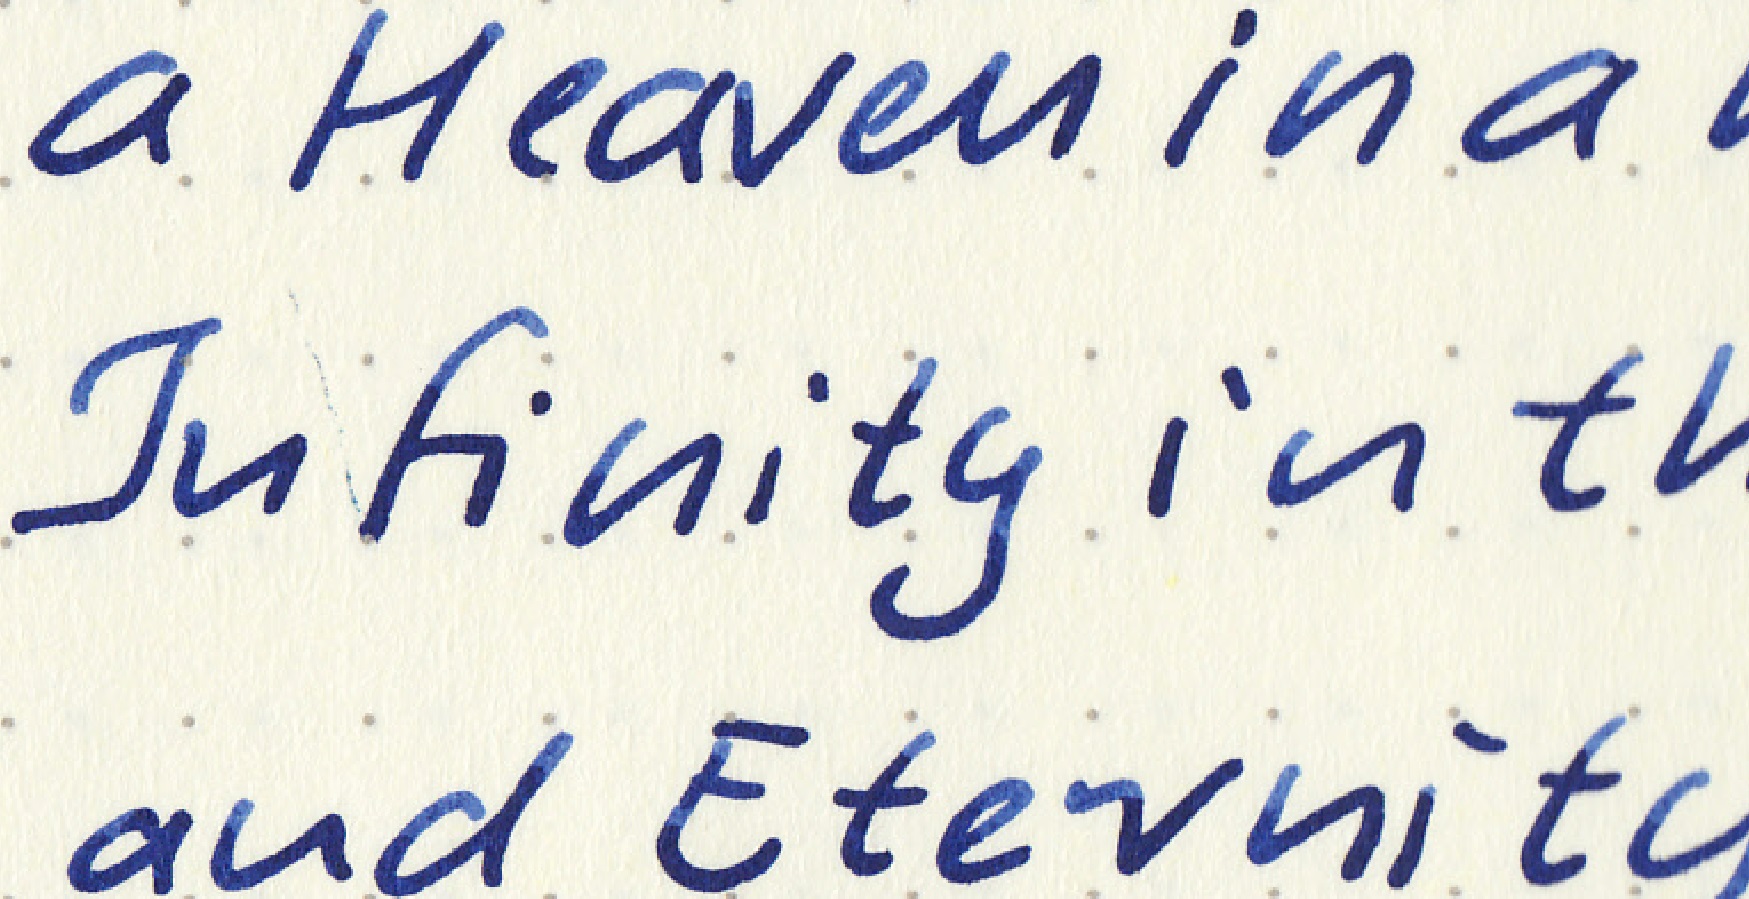 a Heaven in a
Infinity in th
and Eternity